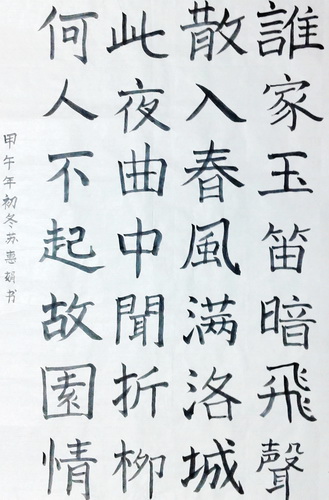 誰家玉笛暗飛聲
散入春風满洛城
此夜曲中聞折柳
何人不起故園情
甲午年初冬苏惠娟书